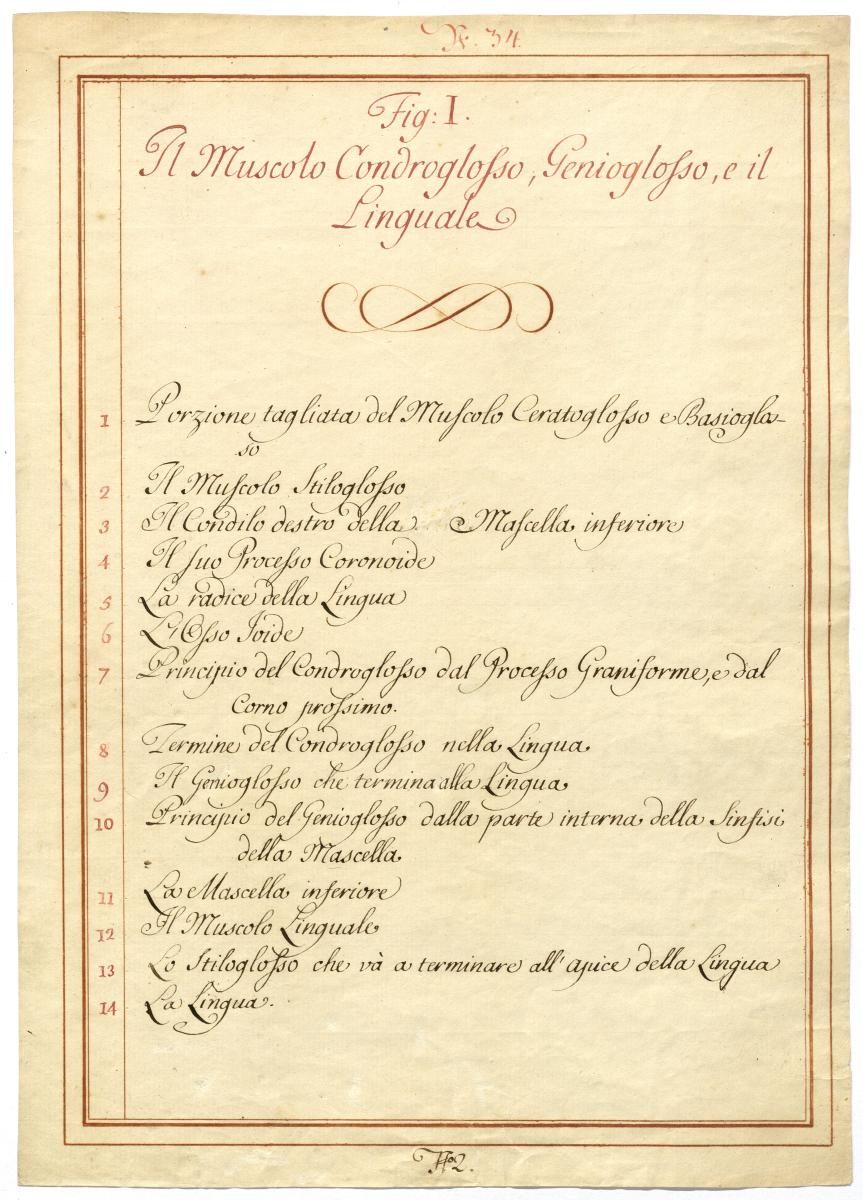 N. 34.
Fig: I.
Il Muscolo Condroglosso, Genioglosso, e il
Linguale
1 Porzione tagliata del Muscolo Ceratoglosso e Basioglo-
so
2 Il Muscolo Stiloglosso
3 Il Condilo destro della Mascella inferiore
4 Il suo Processo Coronoide
5 La radice della Lingua
6 L'Osso Joide
7 Principio del Condroglosso dal Processo Graniforme, e dal
Corno prossimo.
8 Termine del Condroglosso nella Lingua
9 Il Genioglosso che termina alla Lingua
10 Principio del Genioglosso dalla parte interna della Sinfisi
della Mascella
11 La Mascella inferiore
12 Il Muscolo Linguale
13 Lo Stiloglosso che và a terminare all' apice della Lingua
14 La Lingua.